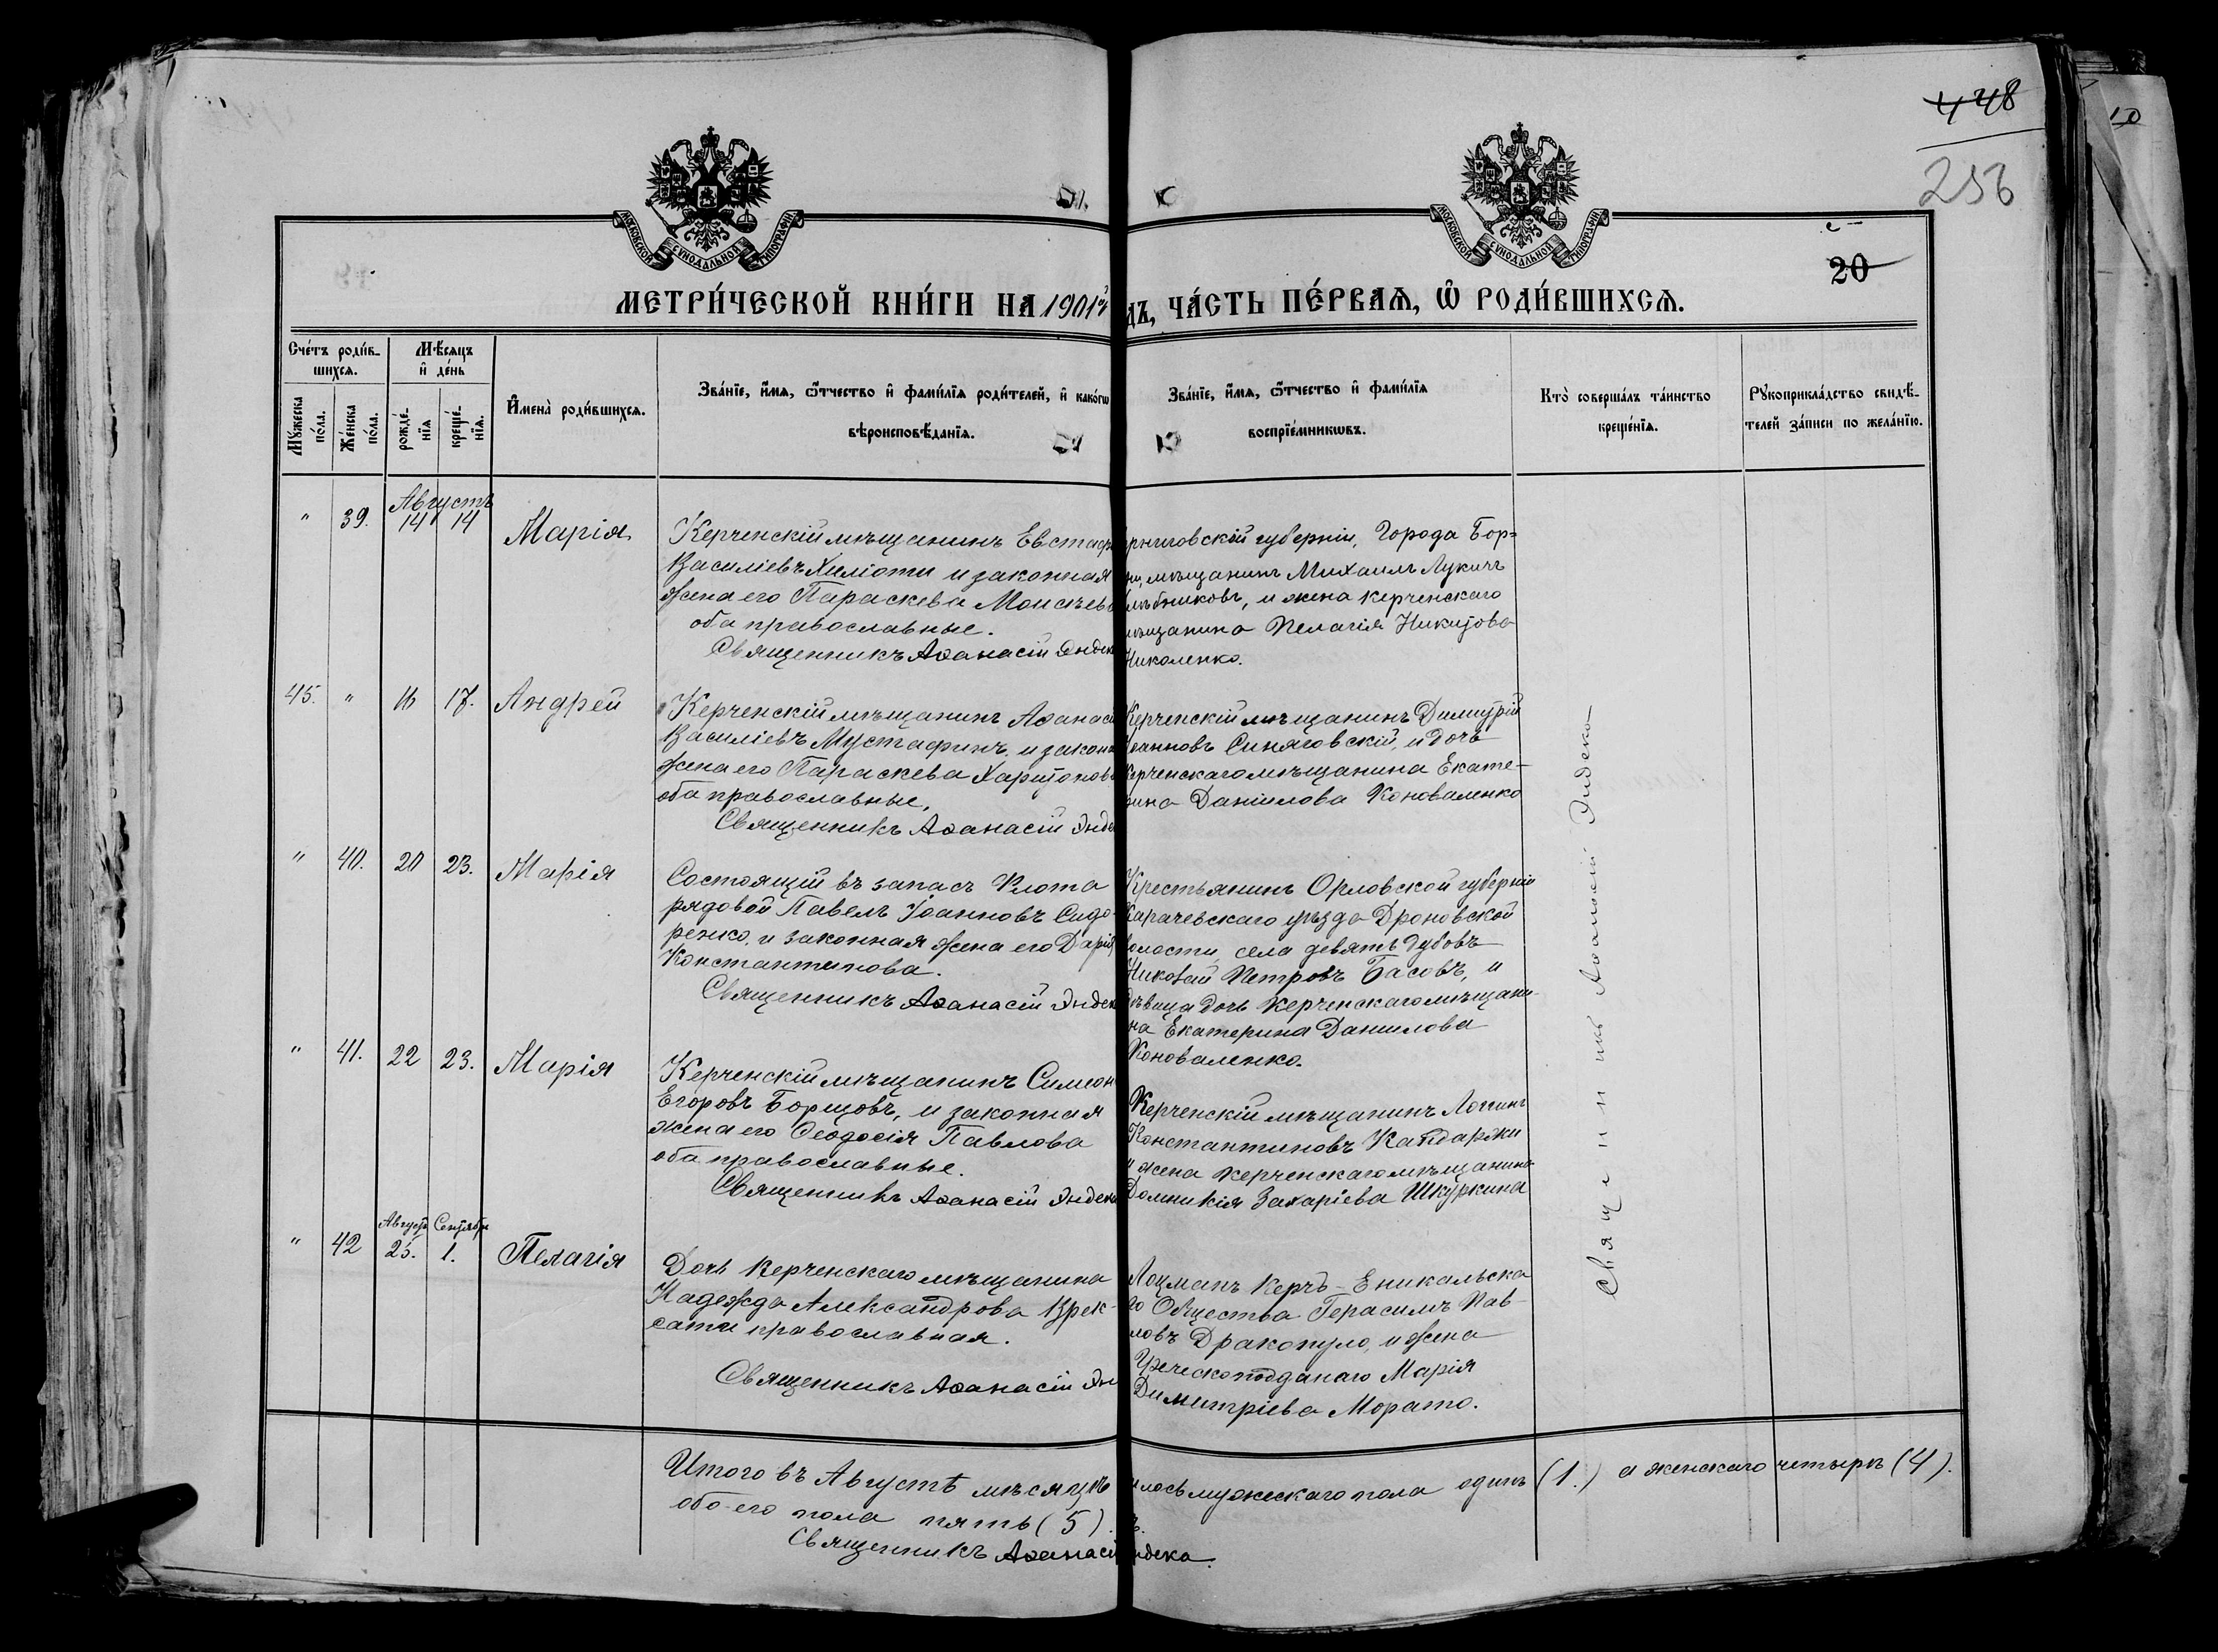 448
256
10
МОСКОВСКОЙ СѴНОДАЛЬНОЙ ТИПОГРАФІИ
МОСКОВСКОЙ СѴНОДАЛЬНОЙ ТИПОГРАФІИ
20
МЕТРИ́ЧЕСКОЙ КНИ́ГИ НА 1901й
ДЪ, ЧА́СТЬ ПЕ́РВАѦ, Ѡ҆ РОДИ́ВШИХСѦ.
Сче́тъ роди́в-
шихсѧ.
Мѣ́сѧцъ
и҆ де́нь
Мꙋ́жеска
по́ла.
Же́нска
по́ла.
рожде́-
нїѧ
креще́-
нїѧ.
И҆мена̀ роди́вшихсѧ.
Зва́нїе, и҆́мѧ, ѻ҆́тчество и҆ фами́лїѧ роди́телей, и҆ како́гѡ
вѣроисповѣ́данїѧ.
Зва́нїе, и҆́мѧ, ѻ҆́тчество и҆ фами́лїѧ
воспрїе́мникѡвъ.
Кто̀ соверша́лъ та́инство
креще́нїѧ.
Рꙋкоприкла́дство свидѣ́-
телей за́писи по жела́нїю.
Августъ
" 39. 14 14 Марія
Керченскій мѣщанинъ Евстаф
Василіевъ Хиліоти и законная
жена его Параскева Моисѣев
оба православные.
Священникъ Аѳанасій Эндек
рниговской губерніи, Города Бор=
ны, мѣщанинъ Михаилъ Лукичъ
лѣбниковъ, и жена керченскаго
мѣщанина Пелагія Никитова
Николенко.
45. " 16 17. Андрей
Керченскій мѣщанинъ Аѳанас
Василіевъ Мустафинъ, и закон
жена его Параскева Харитонов
оба православные,
Священникъ Аѳанасій Энде
Керченскій мѣщанинъ Димитрій
Іоанновъ Синяговскій, и дочь
Керченскаго мѣщанина Екате-
рина Даніилова Коноваленко
" 40. 20 23. Марія
Состоящій въ запасъ Флота
рядовой Павелъ Іоанновъ Сидо-
ренко, и законная жена его Дарія
Константинова.
Священникъ Аѳанасій Эндек
Крестьянинъ Орловской губерніи
Карачевскаго уѣзда Дроновской
волости, села девять Дубовъ
Николай Петровъ Басовъ, и
дѣвица дочь керченскаго мѣщани-
на Екатерина Даниилова
Коноваленко.
" 41. 22 23. Марія
Керченскій мѣщанинъ Симеон
Егоровъ Борщовъ, и законная
жена его Ѳеодосія Павлова
оба православные.
Священникъ Аѳанасій Эндека
Керченскій мѣщанинъ Логгинъ
Константиновъ Кандаржи
и жена керченскаго мѣщанина
Домникія Захаріева Шкуркина
Августъ Сентябрь
" 42 25. 1. Пелагія
Дочь керченскаго мѣщанина
Надежда Александрова Врек-
сати православная.
Священникъ Аѳанасій Эн
Лоцманъ Керчь-Еникальска
го Общества Герасимъ Пав-
ловъ Дракопуло, и жена
Греческоподданаго Марія
Димитріева Морато.
Священникъ Аѳанасій Эндека
Итого въ Августѣ мѣсяцѣ
илось мужескаго пола одинъ (1.) а женскаго четыре (4).
обо-его пола пять (5).
Священникъ Аѳанасі
ндека.